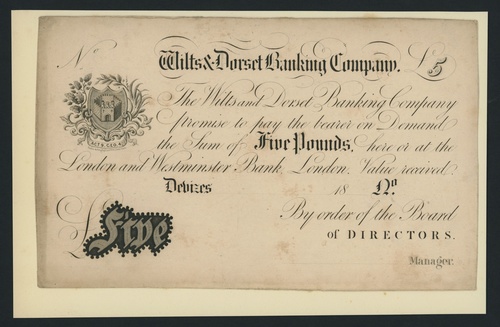 No Wilts & Dorset Banking Company. £5
The Wilts and Dorset Banking Company
promise to pay the bearer on Demand
the Sum of Five Pounds, here or at the
London and Westminster Bank, London. Value received.
Devizes 18 No
By order of the Board
of DIRECTORS.
£ Five
Manager.